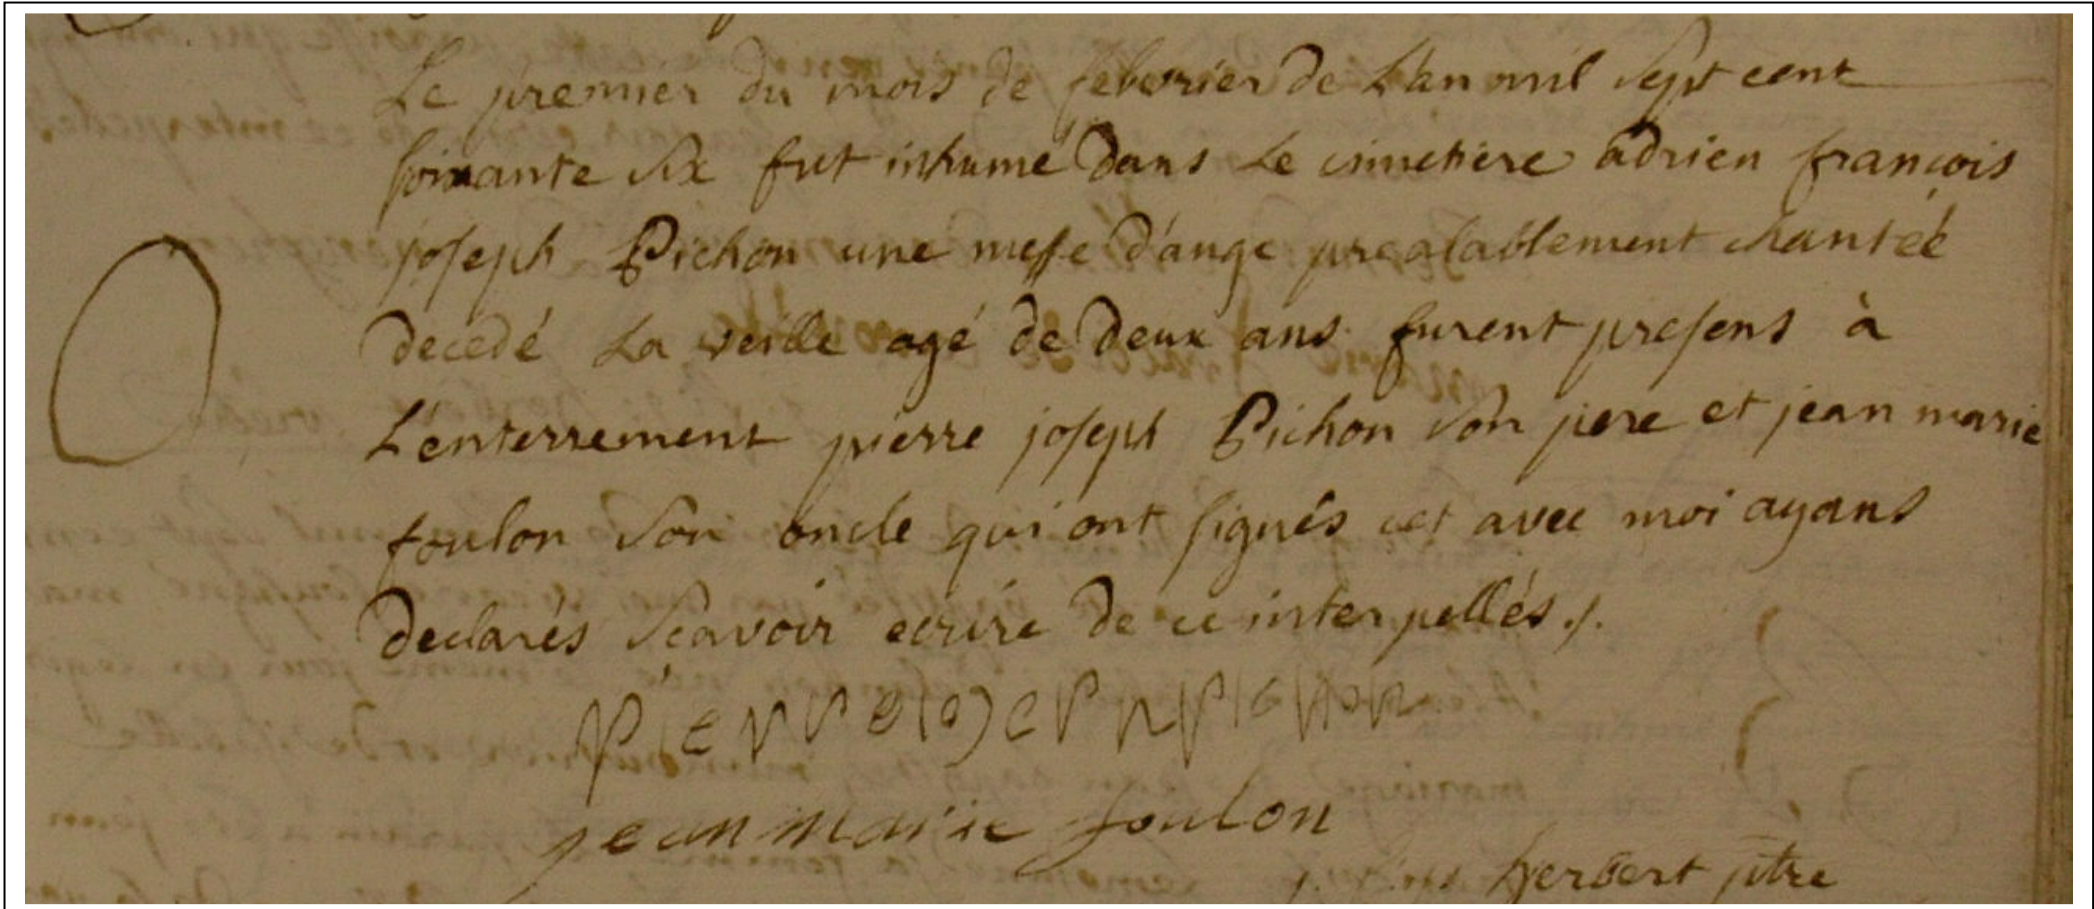 Le premier du mois de febvrier de L'an mil sept cent
soixante six fut inhumé dans Le cimetière adrien françois
joseph Pichon une messe d'ange prealablement chantéé
decedé La veille agé de deux ans furent presens à
L'enterrement pierre joseph Pichon son pere et jean marie
foulon son oncle qui ont signés cet avec moi ayans
declarés scavoir ecrire de ce interpellés ./.
jean marie foulon
herbert ptre